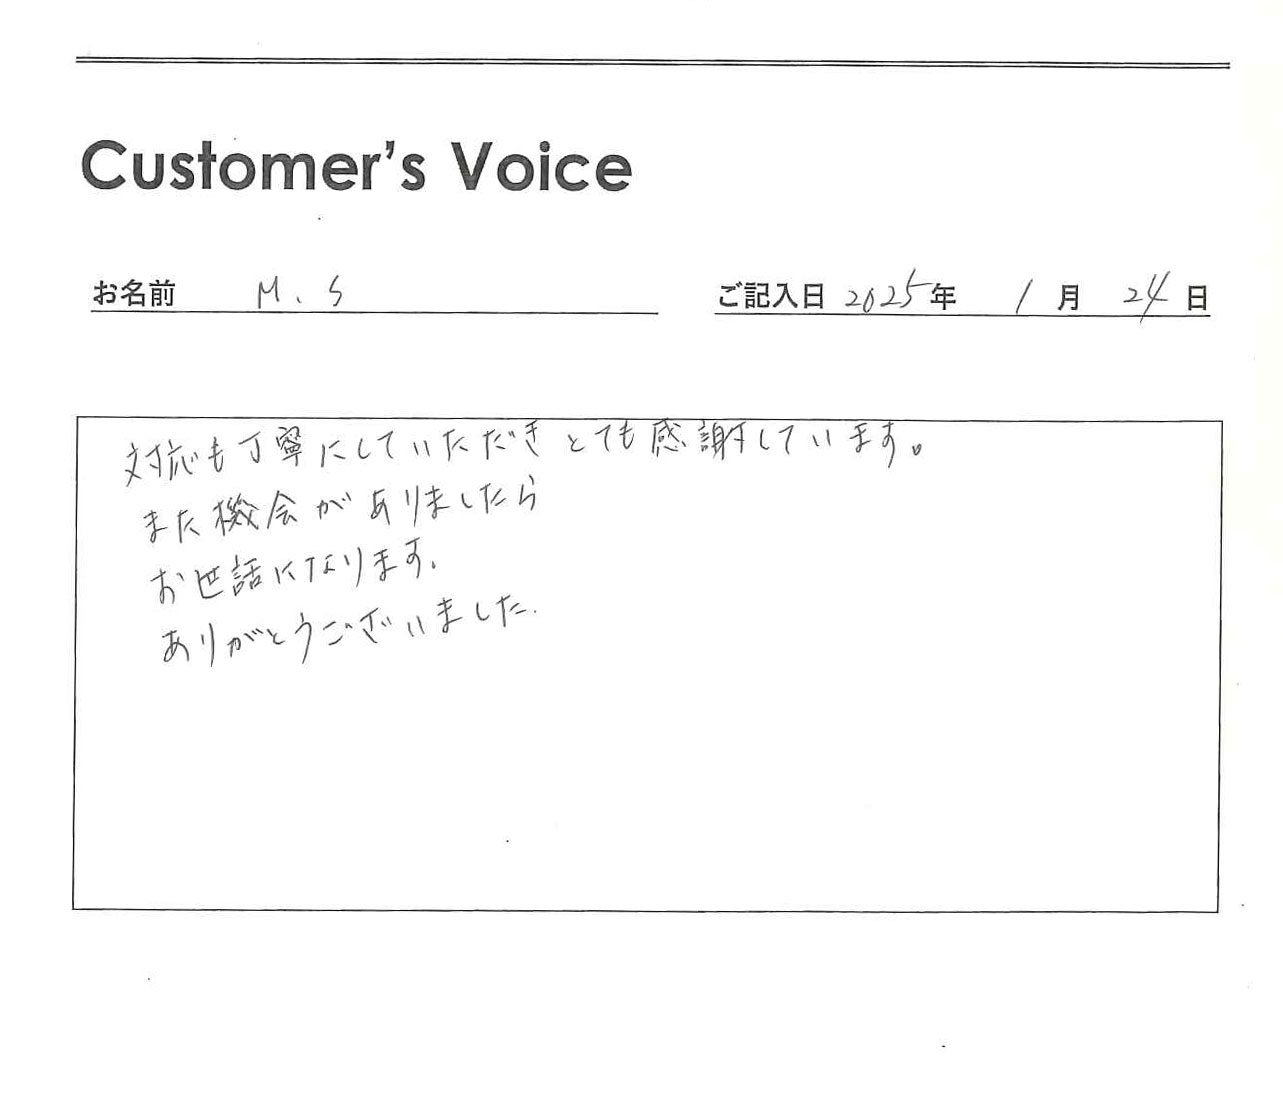 Customer's Voice
お名前 M.S ご記入日 2025年 1月 24日
対応も丁寧にしていただきとても感謝しています。
また機会がありましたら
お世話になります。
ありがとうございました.